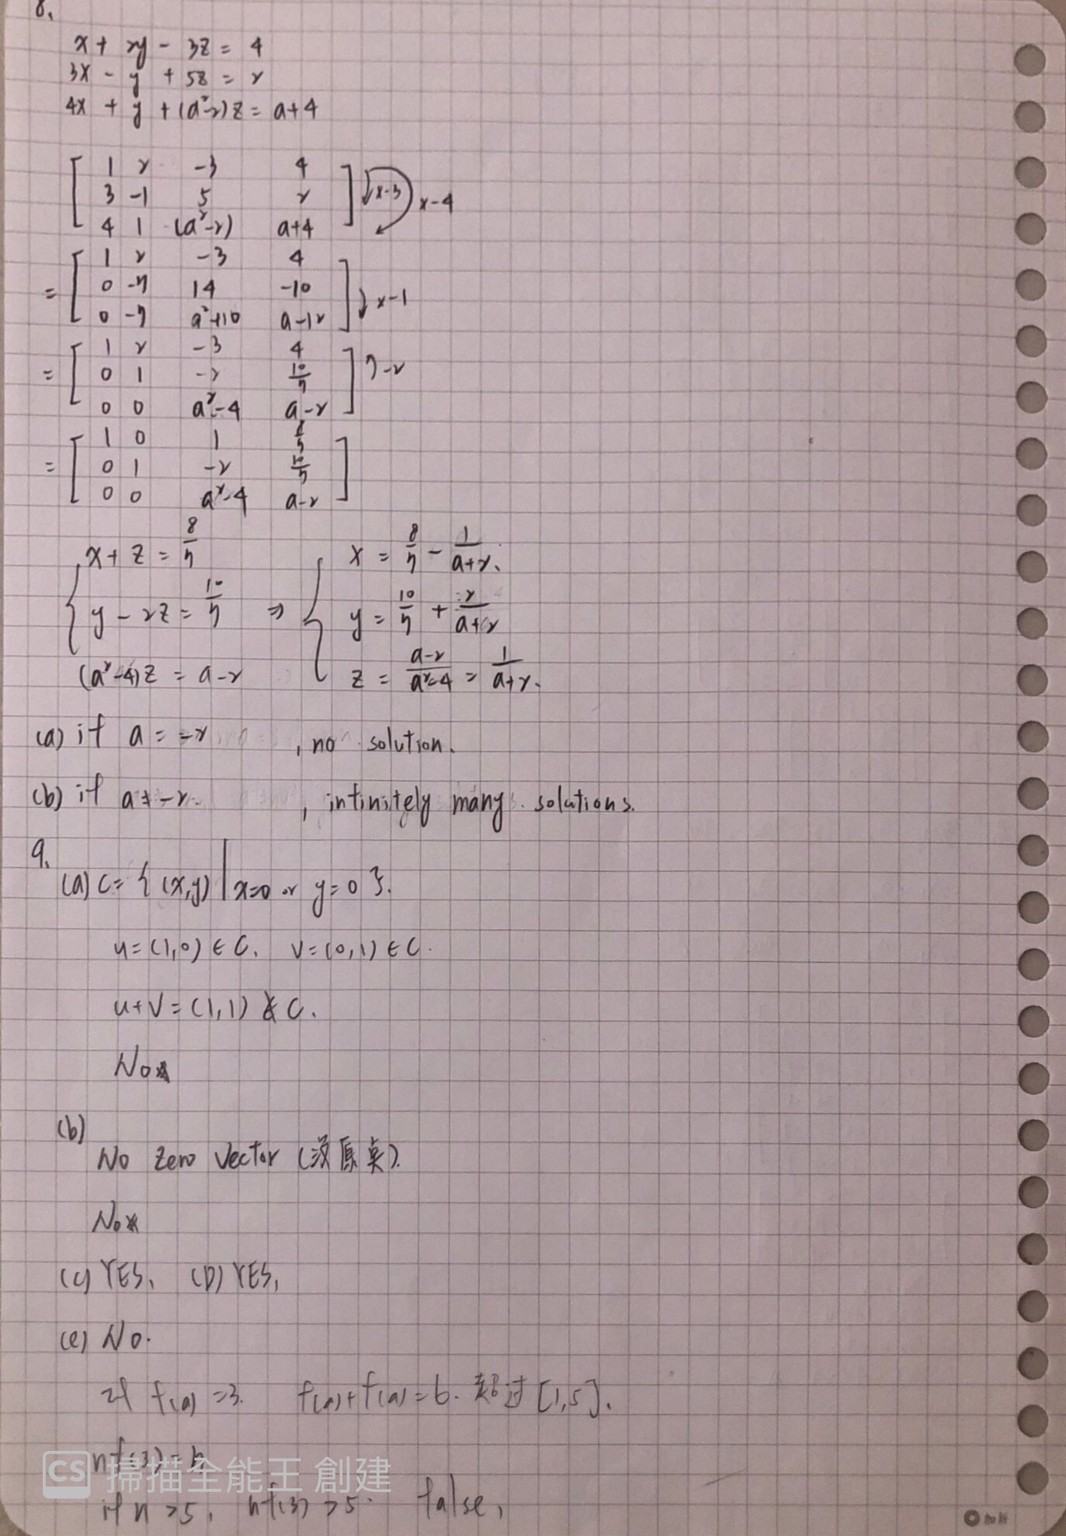 8.
x + 2y - 3z = 4
3x - y + 5z = 2
4x + y + (a²-2)z = a+4
[ 1 2 -3 4
3 -1 5 2
4 1 (a²-2) a+4 ] ↓x-3 x-4
= [ 1 2 -3 4
0 -7 14 -10
0 -7 a²+10 a-12 ] ↓x-1
= [ 1 2 -3 4
0 1 -2 10/7
0 0 a²-4 a-2 ] -2
= [ 1 0 1 8/7
0 1 -2 10/7
0 0 a²-4 a-2 ]
{ x + z = 8/7
y - 2z = 10/7
(a²-4)z = a-2
⇒ { x = 8/7 - 1/(a+2).
y = 10/7 + 2/(a+2)
z = (a-2)/(a²-4) = 1/(a+2).
(a) if a = -2 , no solution.
(b) if a ≠ -2. , infinitely many solutions.
9.
(a) C = { (x,y) | x=0 or y=0 }.
u=(1,0) ∈ C. v=(0,1) ∈ C.
u+v=(1,1) ∉ C.
No
(b)
No zero vector (沒原奌).
No
(c) YES. (D) YES,
(e) No.
if f(a) = 3. f(a)+f(a)=6. 超过 [1,5].
nf(3) =
if n >5, nf(3) >5. false,
CS 掃描全能王 創建